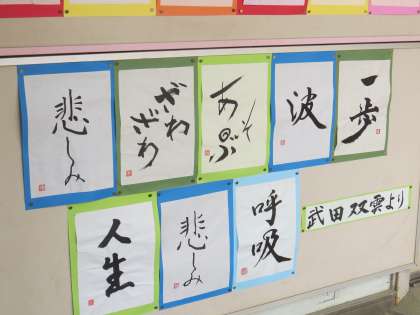 悲しみ
ざわ
ざわ
あそぶ
波
一歩
人生
悲しみ
呼吸
武田双雲より